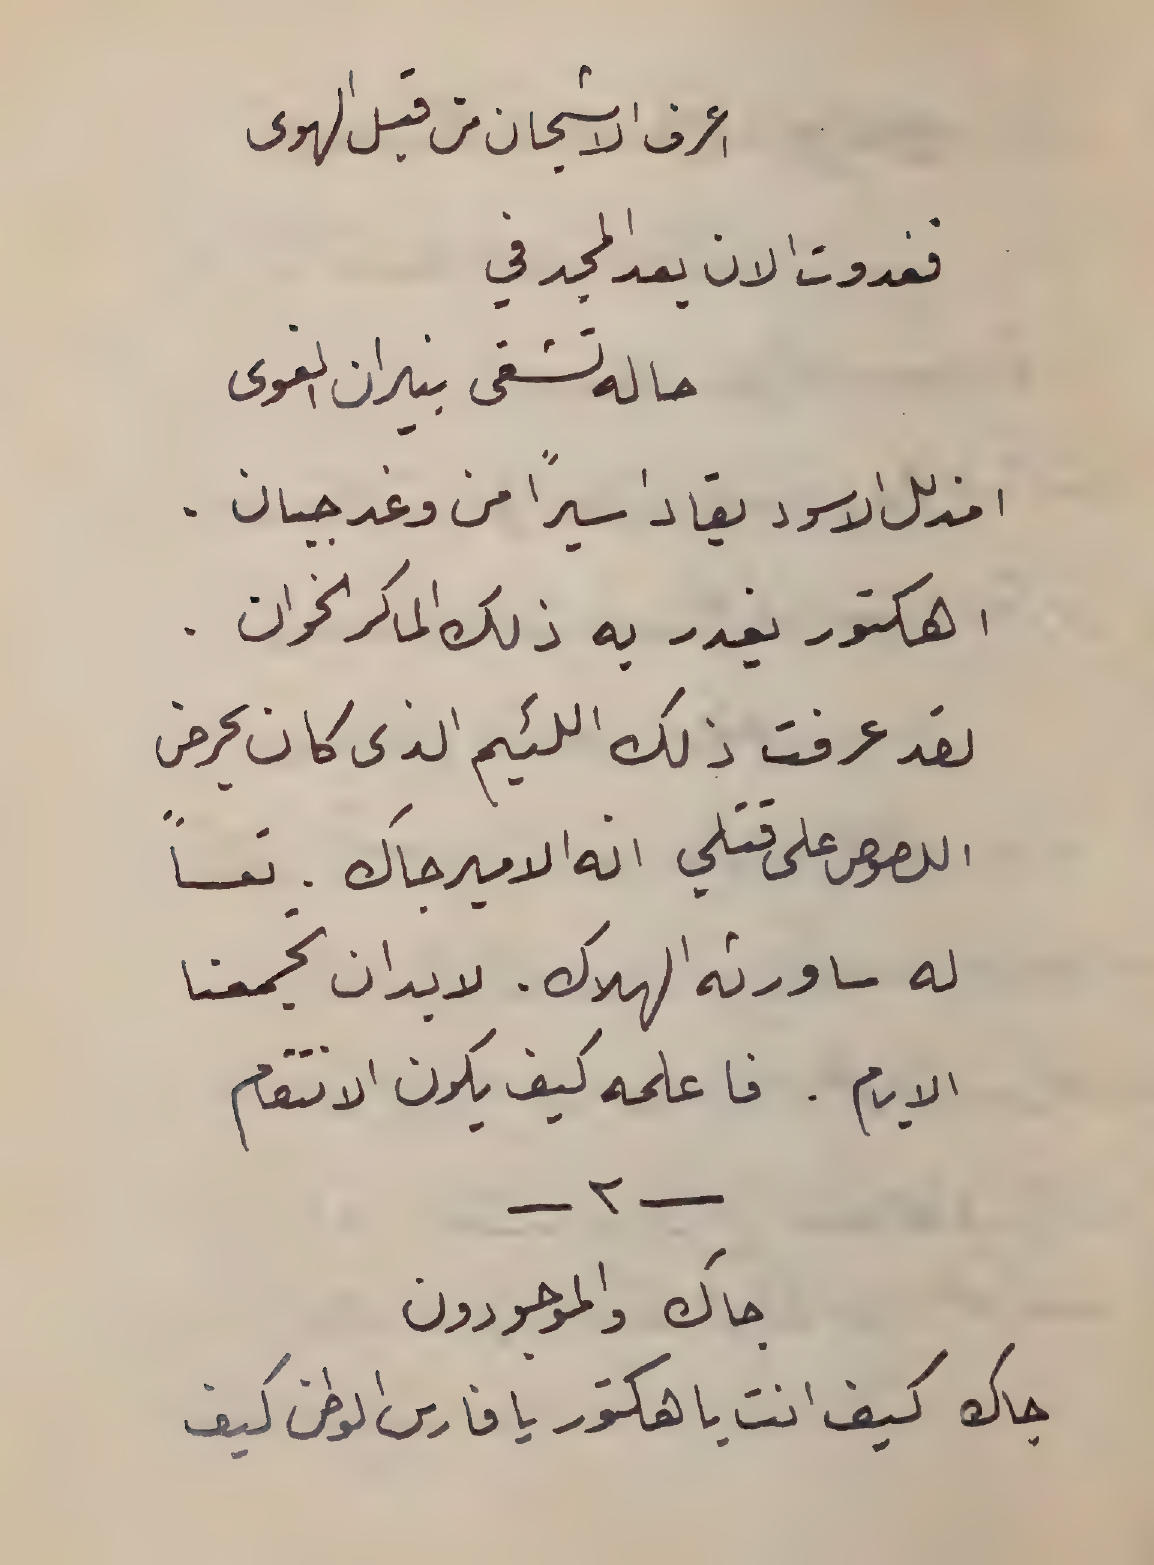 اعرف الاشجان من قبل الهوى
فغدوت الان بعد المجد في
حاله تشقى بنيران الغوى
الاسود يقاد اسيرًا من وغد جبان .
اهكتور يغدر به ذلك الماكر الخوان .
لقد عرفت ذلك اللئيم الذى كان يحرض
اللصوص على قتلي انه الامير جاك . تعساً
له ساورثه الهلاك . لابد ان تجمعنا
الايام . فاعلمه كيف يكون الانتقام
— ٢ —
جاك والموجودون
جاك كيف انت يا هكتور يا فارس الوطن كيف